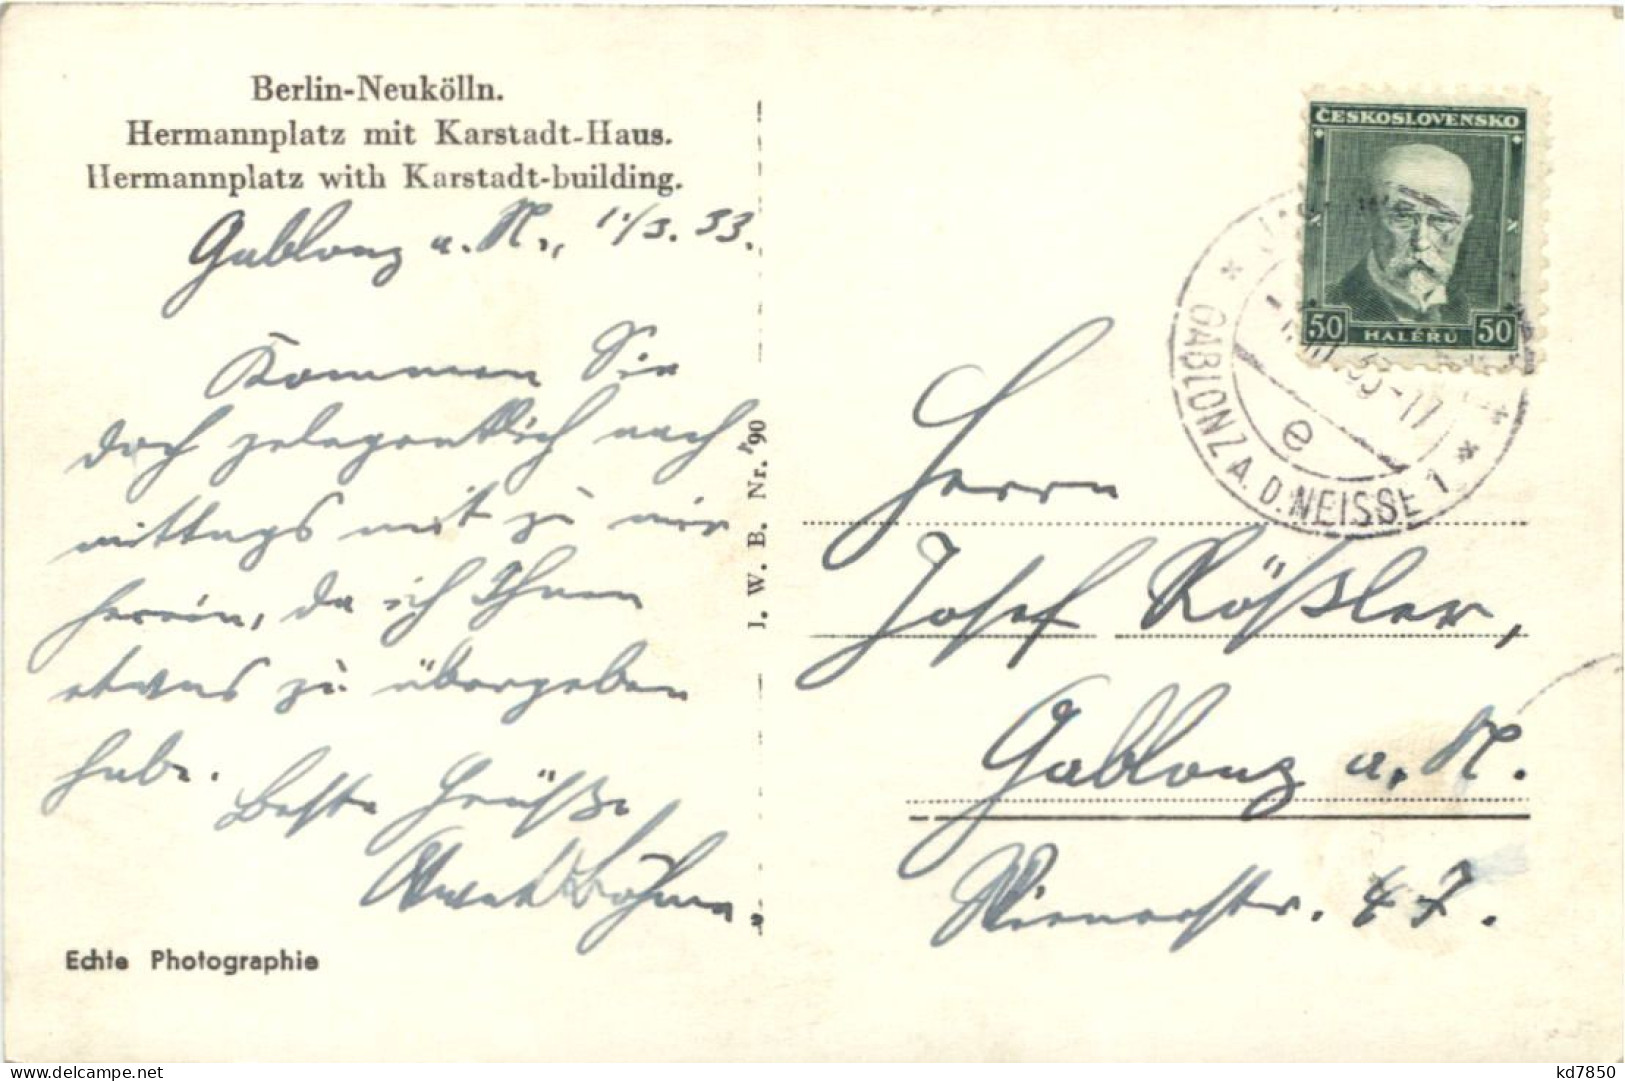 Berlin-Neukölln.
Hermannplatz mit Karstadt-Haus.
Hermannplatz with Karstadt-building.
Gablonz a. N., 11/3. 33.
Kommen Sie
doch gelegentlich nach-
mittags mit zu mir
herein, da ich Ihnen
etwas zu übergeben
habe.
Beste Grüße
Böhm
Echte Photographie
J. W. B. Nr. 90
ČESKOSLOVENSKO
50 HALÉŘŮ 50
GABLONZ A. D. NEISSE 1
e
Herrn
Josef Rößler,
Gablonz a. N.
Wienerstr. 47.
delcampe.net
kd7850